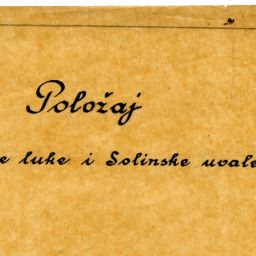 Položaj
e luke i Solinske uvale